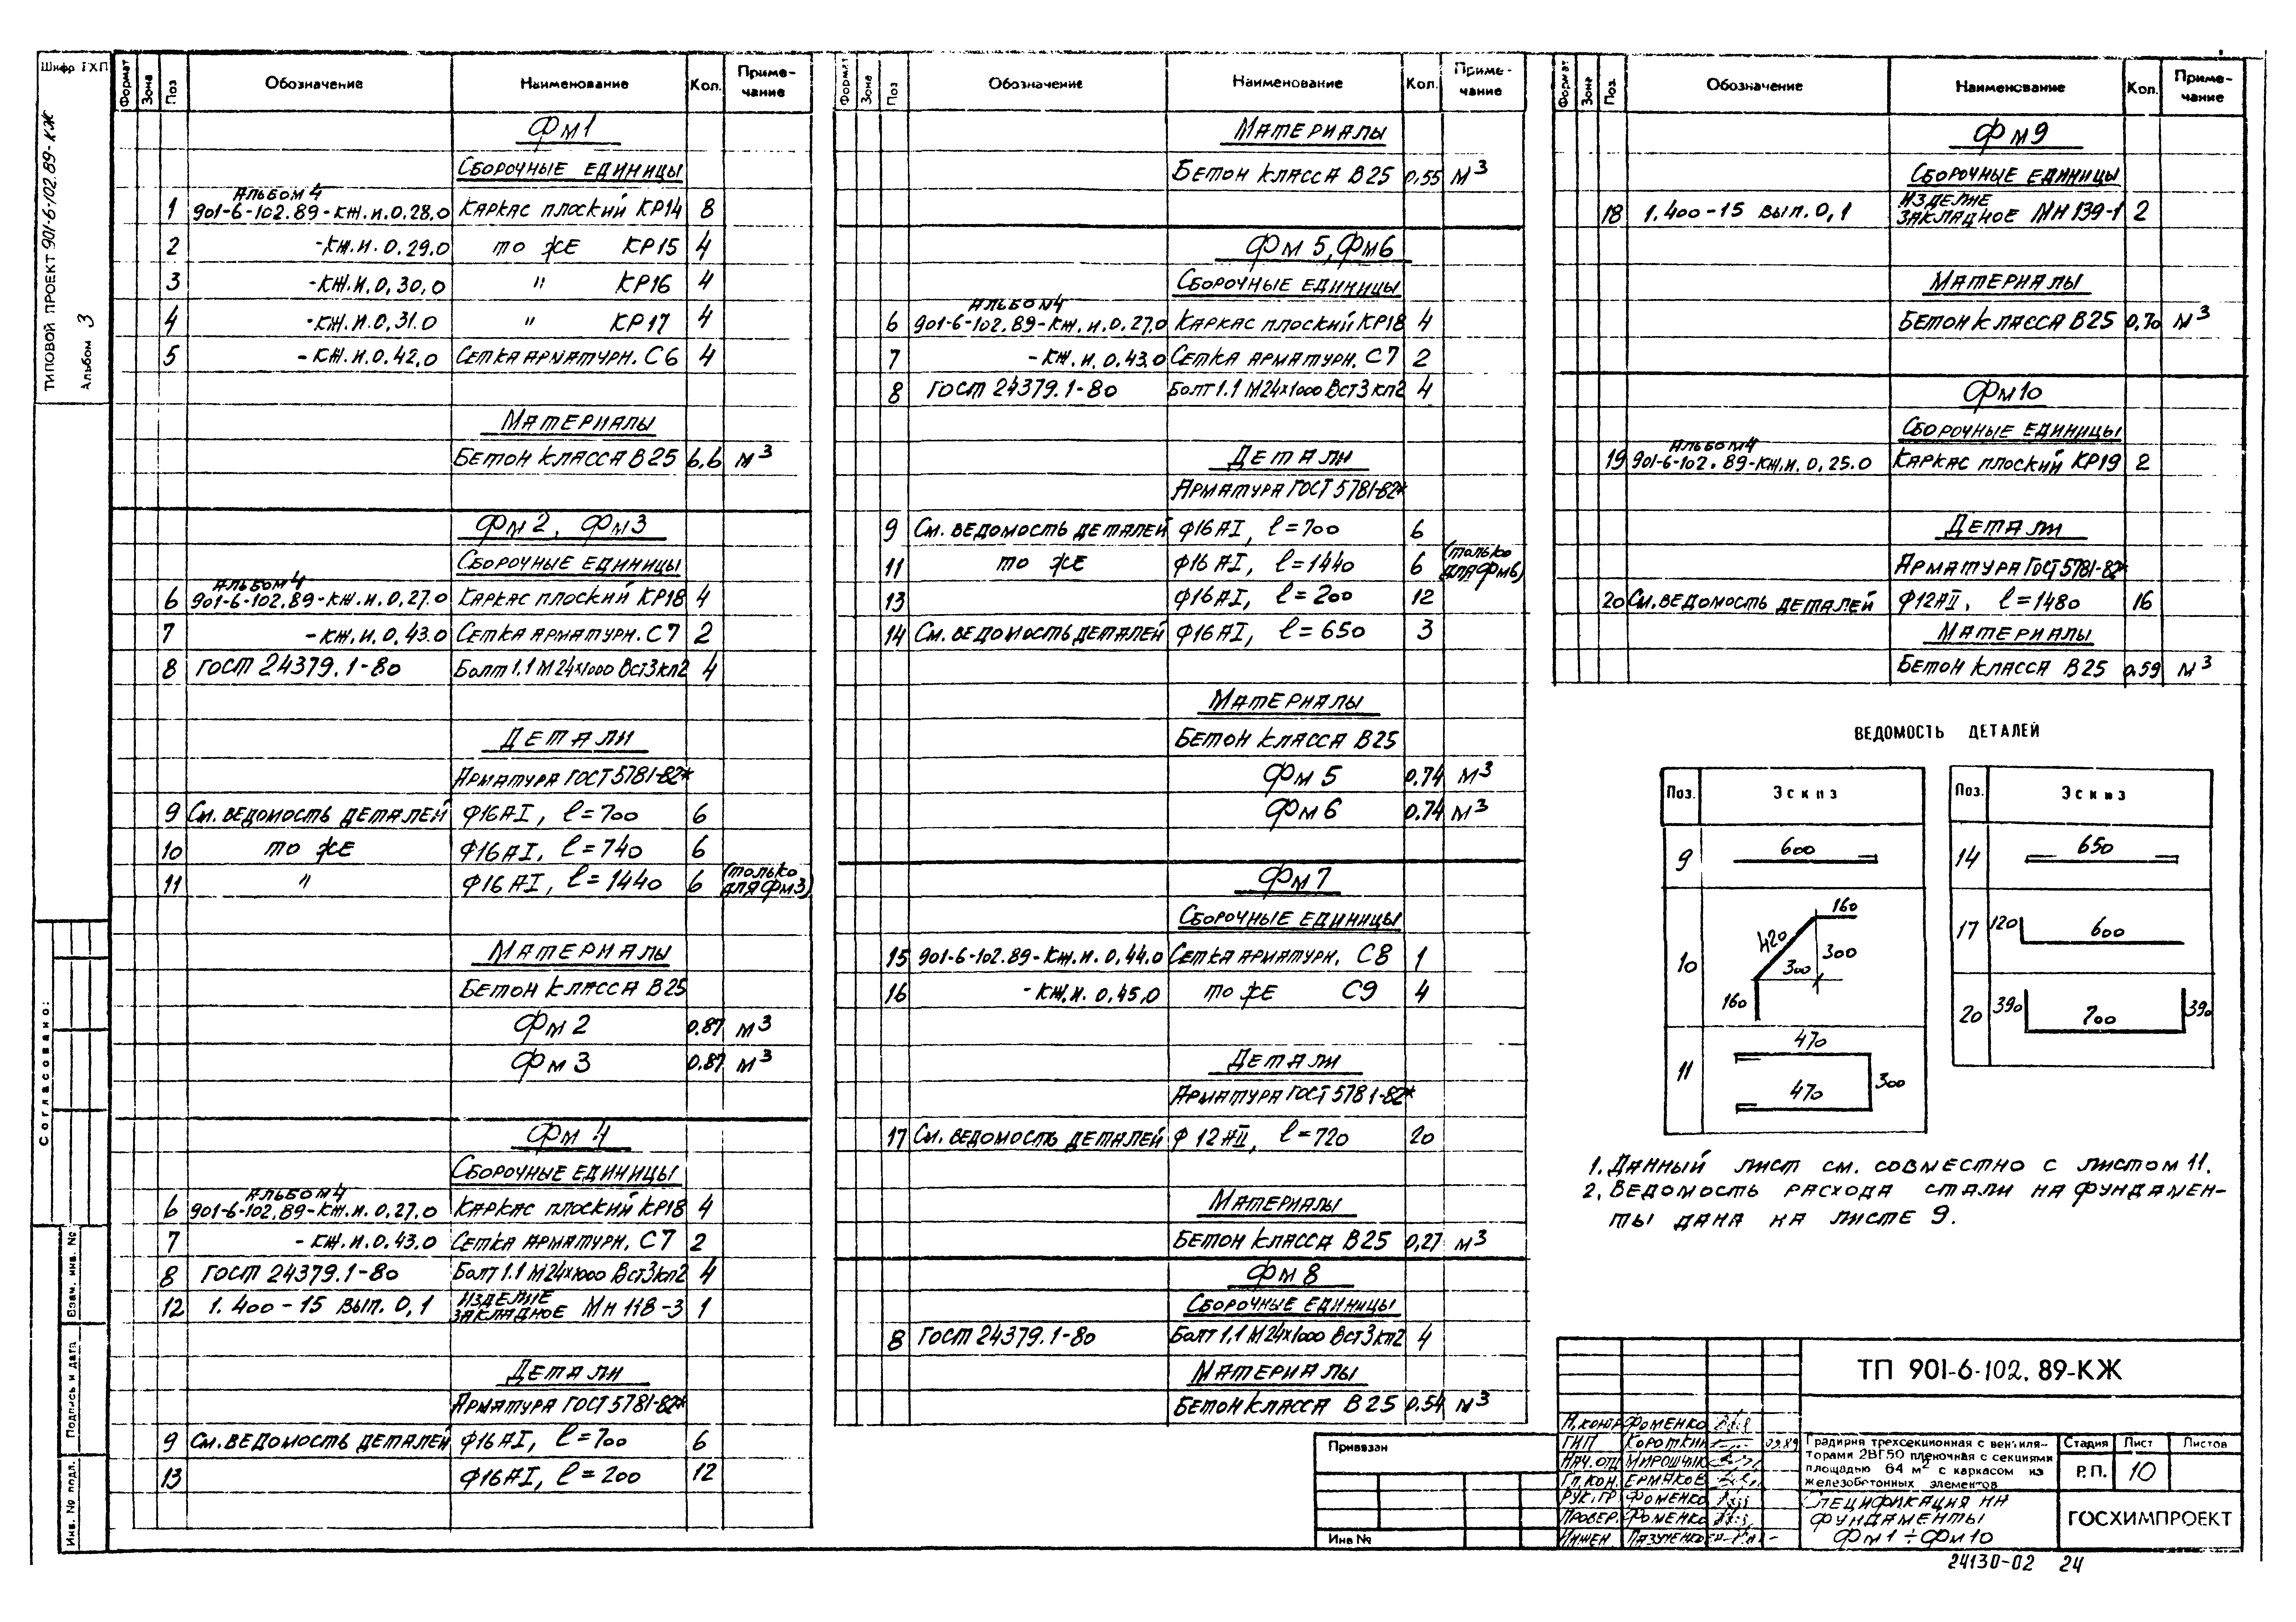 Шифр ГХП
ТИПОВОЙ ПРОЕКТ 901-6-102.89-КЖ
Альбом 3
Согласовано:
Взам. инв. №
Подпись и дата
Инв. № подл.
Формат Зона Поз Обозначение Наименование Кол. Приме-
чание
Фм1
Сборочные единицы
Альбом 4
1 901-6-102.89-КЖ.И.0.28.0 Каркас плоский КР14 8
2 -КЖ.И.0.29.0 то же КР15 4
3 -КЖ.И.0.30.0 " КР16 4
4 -КЖ.И.0.31.0 " КР17 4
5 -КЖ.И.0.42.0 Сетка арматурн. С6 4
Материалы
Бетон класса В25 6,6 м³
Фм2, Фм3
Сборочные единицы
Альбом 4
6 901-6-102.89-КЖ.И.0.27.0 Каркас плоский КР18 4
7 -КЖ.И.0.43.0 Сетка арматурн. С7 2
8 ГОСТ 24379.1-80 Болт 1.1 М24х1000 Вст3кп2 4
Детали
Арматура ГОСТ 5781-82*
9 См. ведомость деталей Ф16АI, l=700 6
10 то же Ф16АI, l=740 6
11 " Ф16АI, l=1440 6 (только
для Фм3)
Материалы
Бетон класса В25
Фм2 0.87 м³
Фм3 0.87 м³
Фм4
Сборочные единицы
Альбом 4
6 901-6-102.89-КЖ.И.0.27.0 Каркас плоский КР18 4
7 -КЖ.И.0.43.0 Сетка арматурн. С7 2
8 ГОСТ 24379.1-80 Болт 1.1 М24х1000 Вст3кп2 4
12 1.400-15 вып. 0,1 Изделие
закладное МН 118-3 1
Детали
Арматура ГОСТ 5781-82*
9 См. ведомость деталей Ф16АI, l=700 6
13 Ф16АI, l=200 12
Формат Зона Поз Обозначение Наименование Кол. Приме-
чание
Материалы
Бетон класса В25 0,55 м³
Фм5, Фм6
Сборочные единицы
Альбом 4
6 901-6-102.89-КЖ.И.0.27.0 Каркас плоский КР18 4
7 -КЖ.И.0.43.0 Сетка арматурн. С7 2
8 ГОСТ 24379.1-80 Болт 1.1 М24х1000 Вст3кп2 4
Детали
Арматура ГОСТ 5781-82*
9 См. ведомость деталей Ф16АI, l=700 6
11 то же Ф16АI, l=1440 6 (только
для Фм6)
13 Ф16АI, l=200 12
14 См. ведомость деталей Ф16АI, l=650 3
Материалы
Бетон класса В25
Фм5 0.74 м³
Фм6 0.74 м³
Фм7
Сборочные единицы
15 901-6-102.89-КЖ.И.0.44.0 Сетка арматурн. С8 1
16 -КЖ.И.0.45.0 то же С9 4
Детали
Арматура ГОСТ 5781-82*
17 См. ведомость деталей Ф12АII, l=720 20
Материалы
Бетон класса В25 0,27 м³
Фм8
Сборочные единицы
8 ГОСТ 24379.1-80 Болт 1.1 М24х1000 Вст3кп2 4
Материалы
Бетон класса В25 0.54 м³
Формат Зона Поз. Обозначение Наименование Кол. Приме-
чание
Фм9
Сборочные единицы
18 1.400-15 вып. 0,1 Изделие
закладное МН 139-1 2
Материалы
Бетон класса В25 0,70 м³
Фм10
Сборочные единицы
Альбом 4
19 901-6-102.89-КЖ.И.0.25.0 Каркас плоский КР19 2
Детали
Арматура ГОСТ 5781-82*
20 См. ведомость деталей Ф12АII, l=1480 16
Материалы
Бетон класса В25 0.59 м³
ВЕДОМОСТЬ ДЕТАЛЕЙ
Поз. Эскиз
9 600
10 160 420 300 300 160
11 470 470 300
Поз. Эскиз
14 650
17 120 600
20 390 700 390
1. Данный лист см. совместно с листом 11.
2. Ведомость расхода стали на фундамен-
ты дана на листе 9.
Привязан
Инв №
ТП 901-6-102.89-КЖ
Н.контр Фоменко
ГИП Короткин 09.89
Нач.отд Мирошник
Гл.кон. Ермаков
Рук.гр Фоменко
Провер. Фоменко
Инжен.
Градирня трехсекционная с вентиля-
торами 2ВГ50 пленочная с секциями
площадью 64 м² с каркасом из
железобетонных элементов
Стадия Лист Листов
Р.П. 10
Спецификация на
фундаменты
Фм1÷Фм10
ГОСХИМПРОЕКТ
24130-02 24